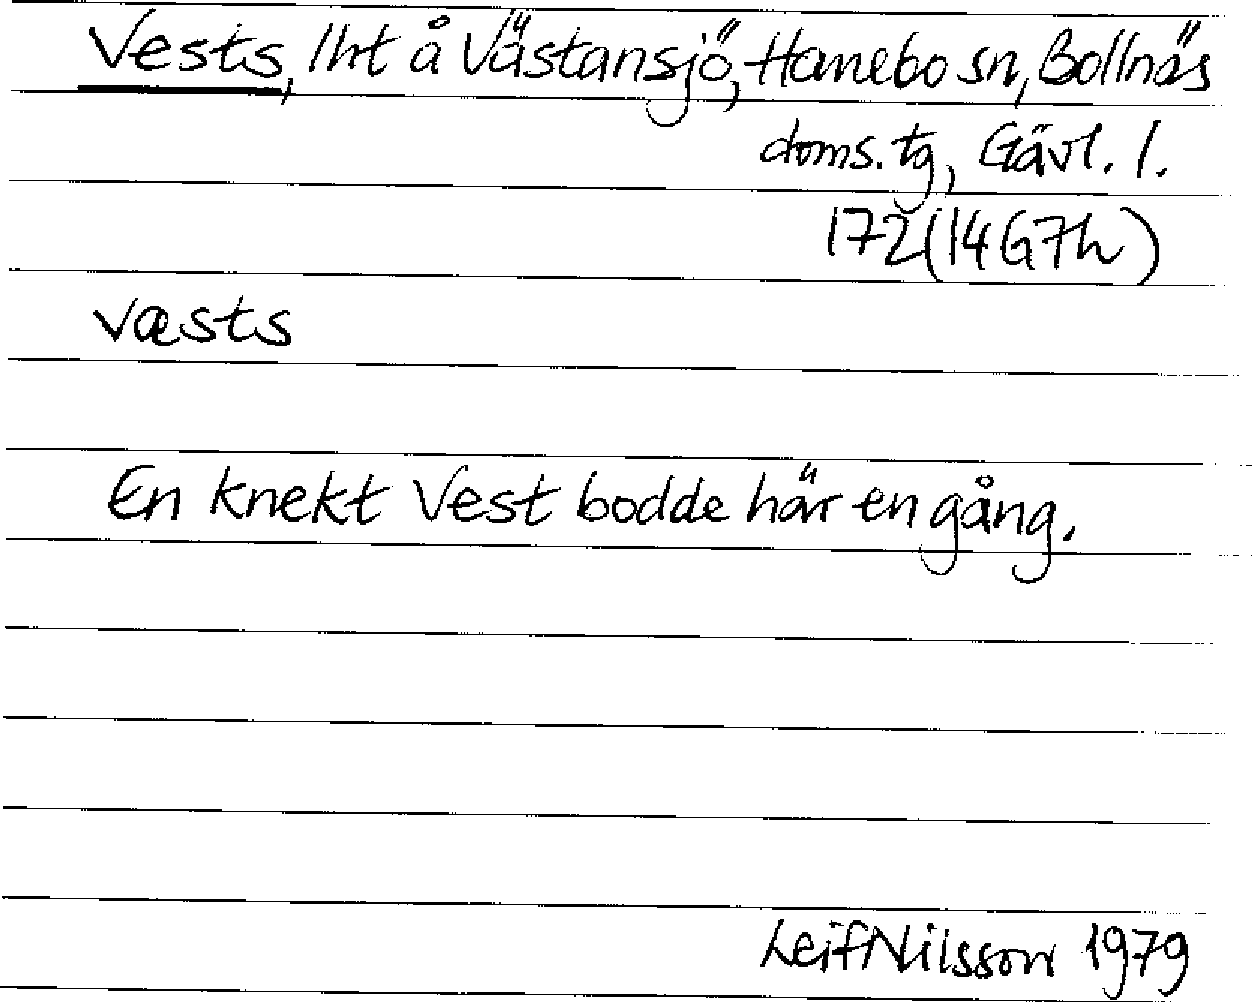 Vests, lht å Västansjö, Hanebo sn, Bollnäs
doms. tg, Gävl. l.
172 (14G7h)
væsts
En knekt Vest bodde här en gång.
Leif Nilsson 1979